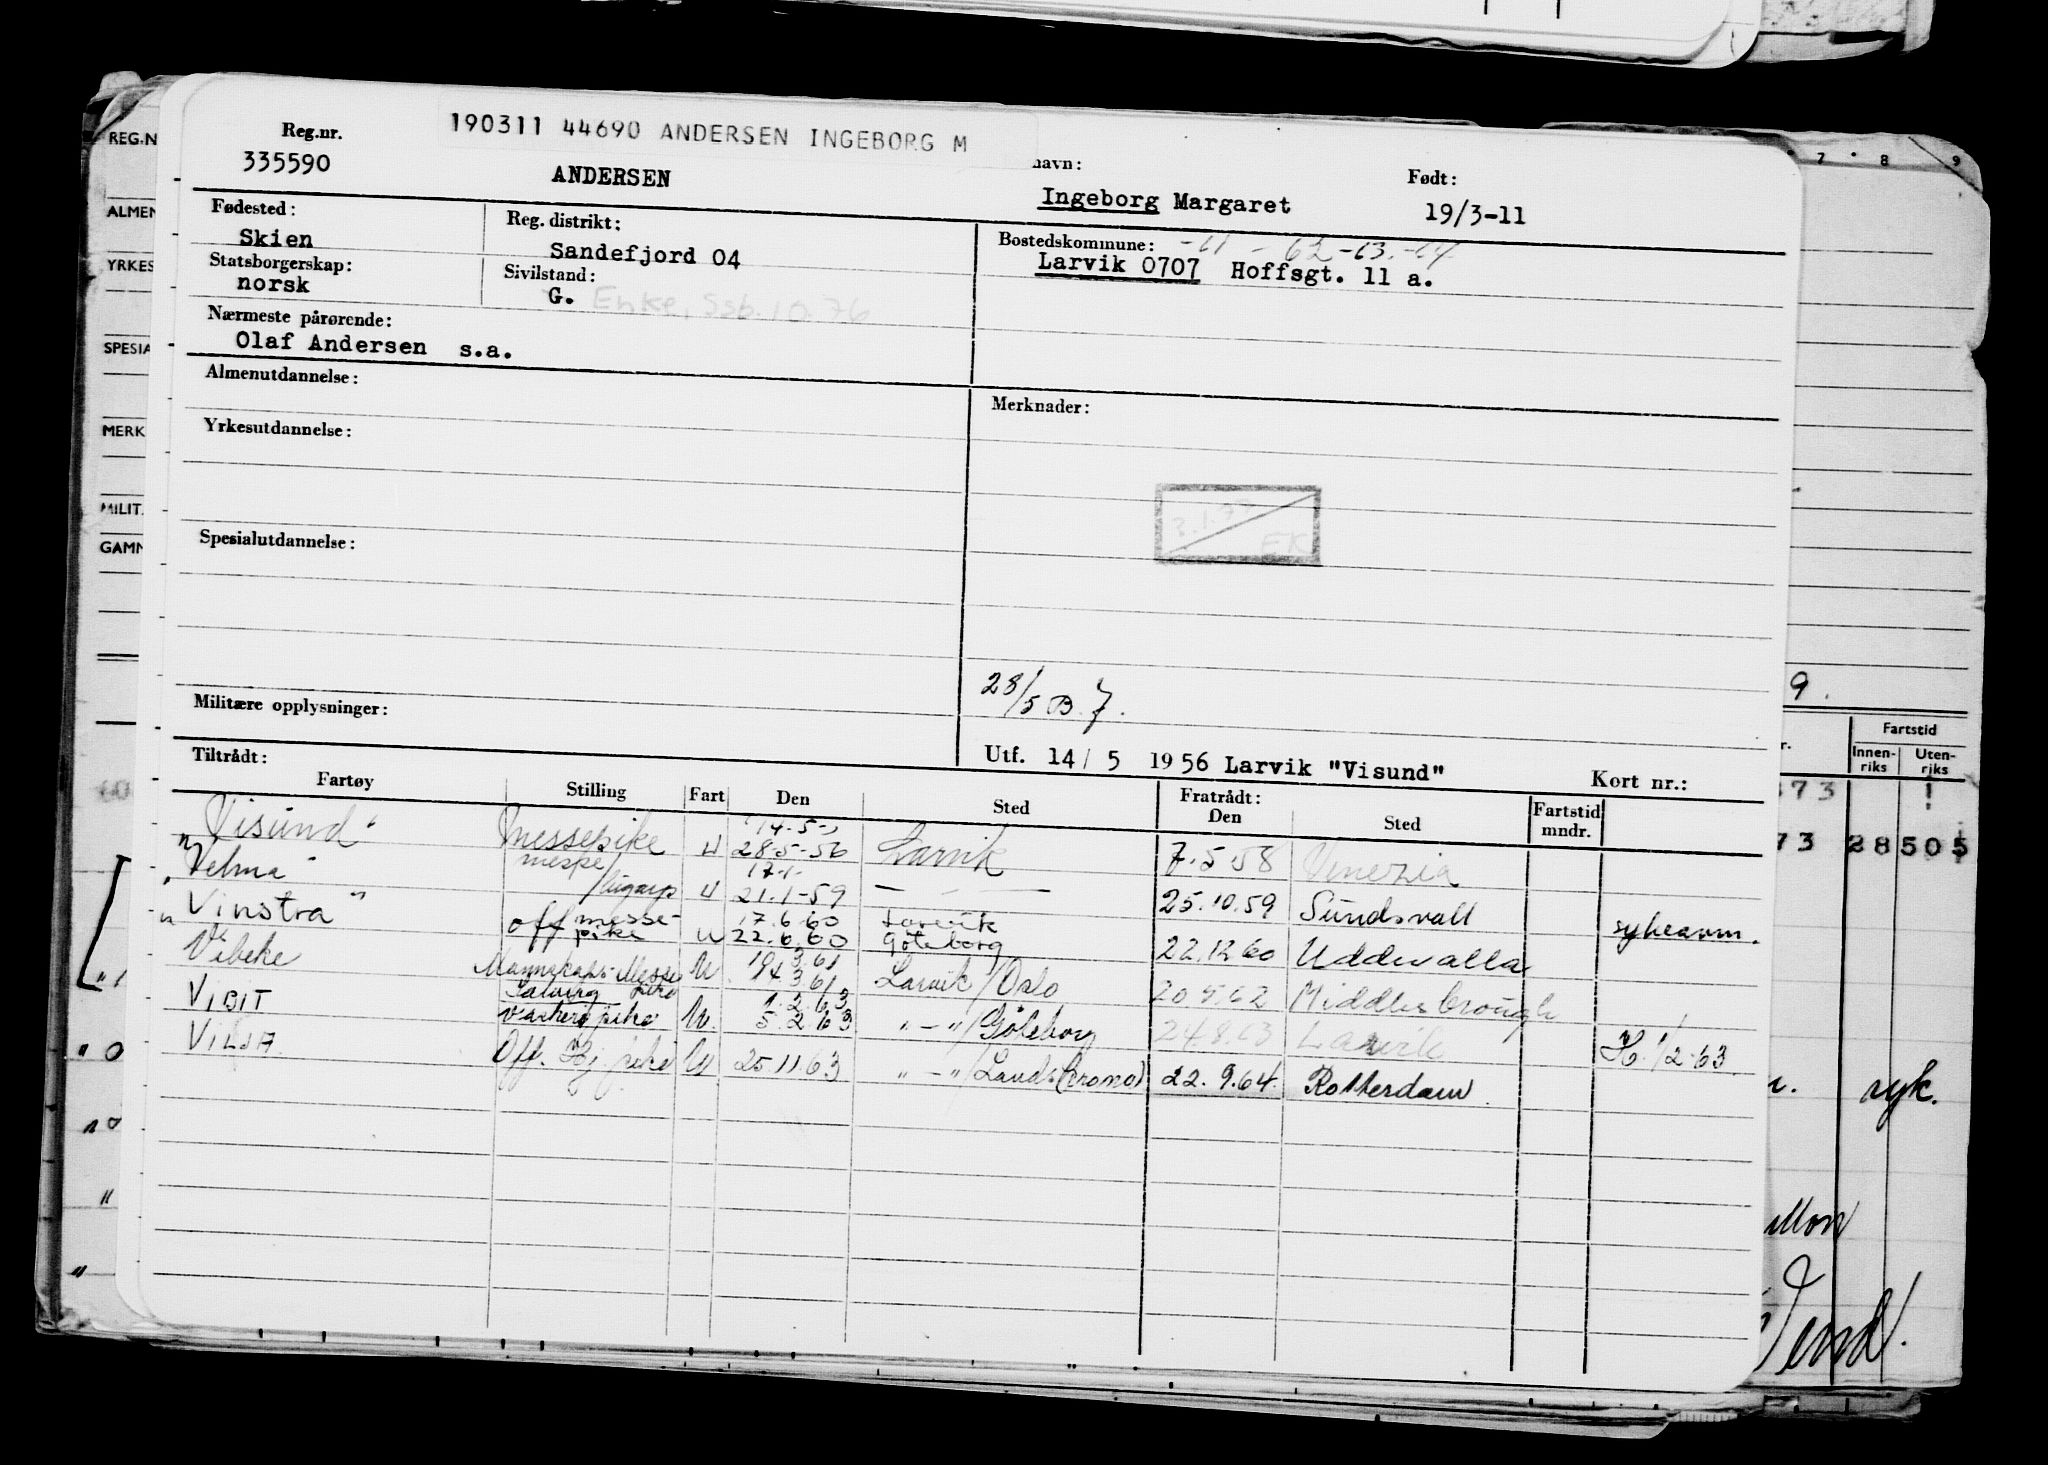 190311 44690 ANDERSEN INGEBORG M
Reg.nr. 335590
ANDERSEN
navn: Ingeborg Margaret
Født: 19/3-11
Fødested: Skien
Reg. distrikt: Sandefjord 04
Bostedskommune: -61 - 62 -63.-64
Larvik 0707 Hoffsgt. 11 a.
Statsborgerskap: norsk
Sivilstand: G. Enke, Ssb. 10.76
Nærmeste pårørende: Olaf Andersen s.a.
Almenutdannelse:
Merknader:
Yrkesutdannelse:
3.1.77 EK
Spesialutdannelse:
28/5 B. 7.
Militære opplysninger:
Utf. 14/ 5 1956 Larvik "Visund"
Kort nr.:
Tiltrådt:
Fartøy Stilling Fart Den Sted Fratrådt: Den Sted Fartstid mndr.
"Visund" messepike U 14-5- 28-5-56 Larvik 7.5.58 Venezia
"Velma" messe/ U 17.1. 21.1-59 — — — 25.10.59 Sundsvall
"Vinstra" off messepike U 17.6.60 22.6.60 Larvik Göteborg 22.12.60 Uddevalla
Vibeke Mannskaps-Messe U 3.61 3.61 Larvik/Oslo 20.5.62 Middlesbrough
VIBIT U. 1.2.63 5.2.63 " - "/Göteborg 24.8.63 Larvik 1/2-63
VILJA Off. pike U 25.11.63 " - "/Landskrona) 22.9.64 Rotterdam
REG.N
ALMEN
YRKES
SPESIA
MERK
MILIT.
GAMN
7 8 9
9.
Fartstid
Innenriks Utenriks
73
73 28 505
syk.